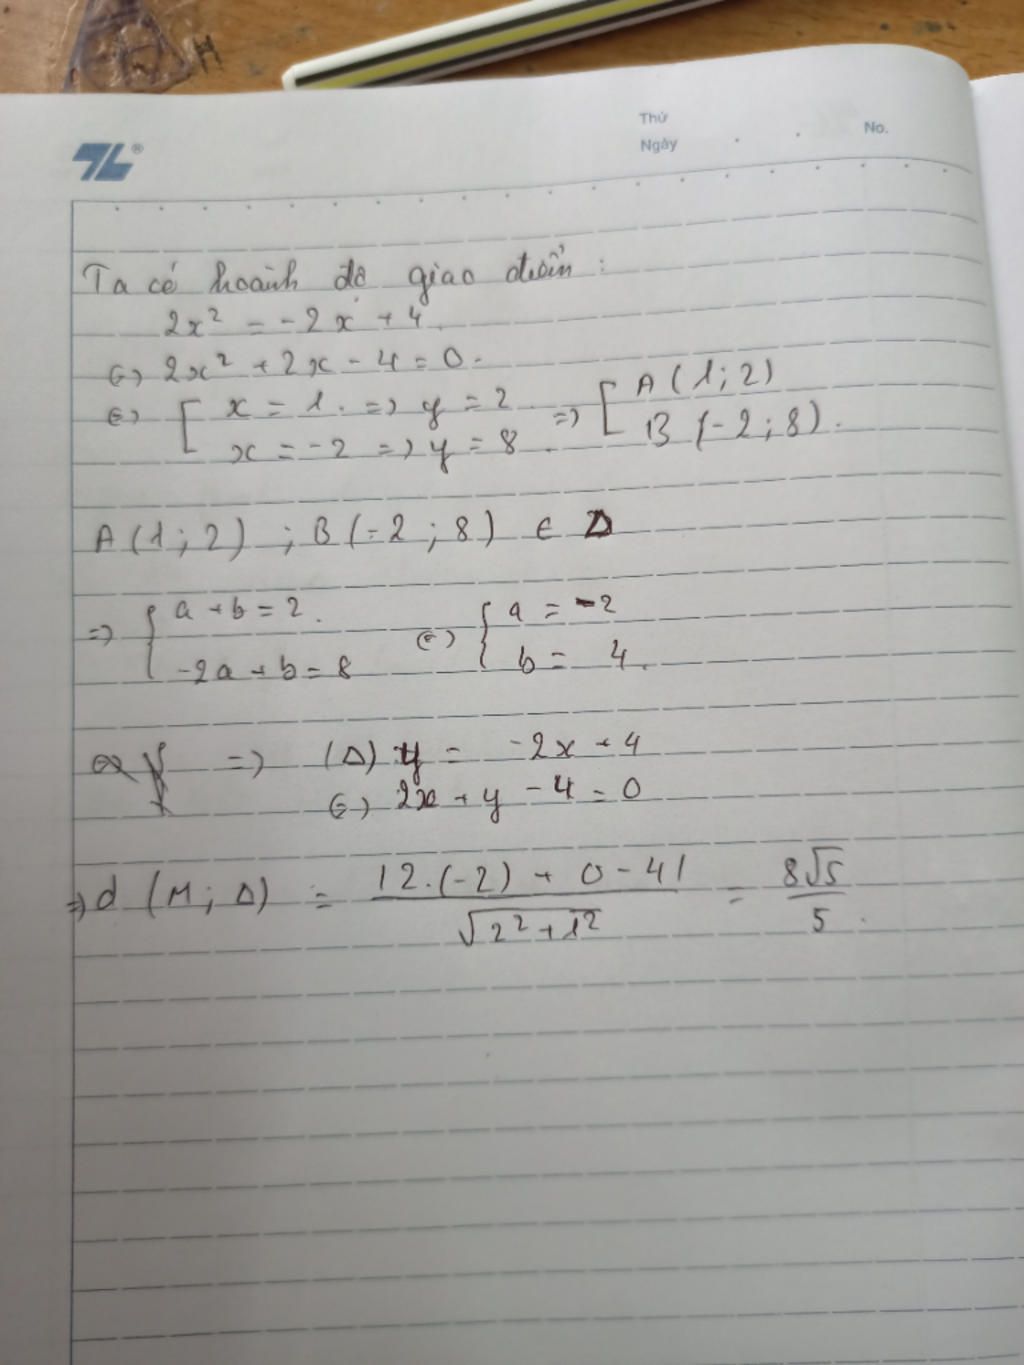 Thứ
Ngày
No.
TL®
Ta có hoành độ giao điểm :
2x² = -2x + 4.
<=> 2x² + 2x - 4 = 0.
<=> [ x = 1. => y = 2 => [ A (1; 2)
x = -2 => y = 8. B (-2; 8).
A (1; 2) ; B (-2; 8) ∈ Δ
=> { a + b = 2. <=> { a = -2
-2a + b = 8 b = 4.
=> (Δ) y = -2x + 4
<=> 2x + y - 4 = 0
=> d (M; Δ) = |2.(-2) + 0 - 4| / √2² + 1² = 8√5 / 5.